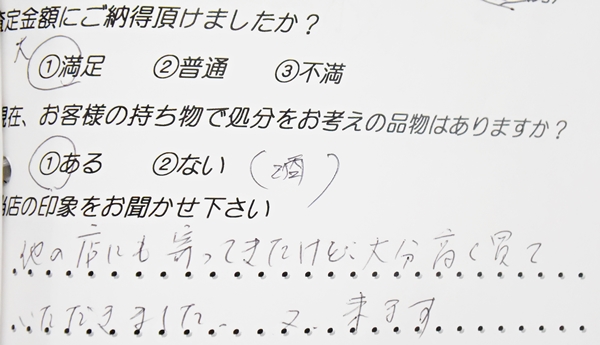 査定金額にご納得頂けましたか?
大 ①満足 ②普通 ③不満
現在、お客様の持ち物で処分をお考えの品物はありますか?
①ある ②ない (酒)
当店の印象をお聞かせ下さい
他の店にも寄ってきたけど、大分高く買て
いただきました。 又 来ます